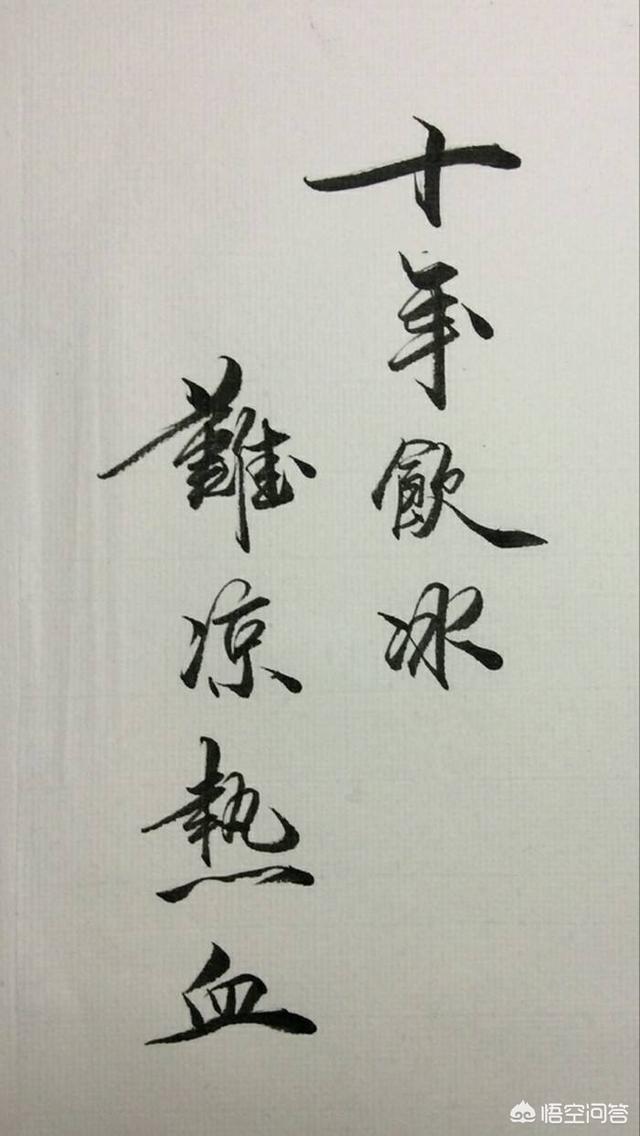 十年飲冰
難涼熱血
悟空问答